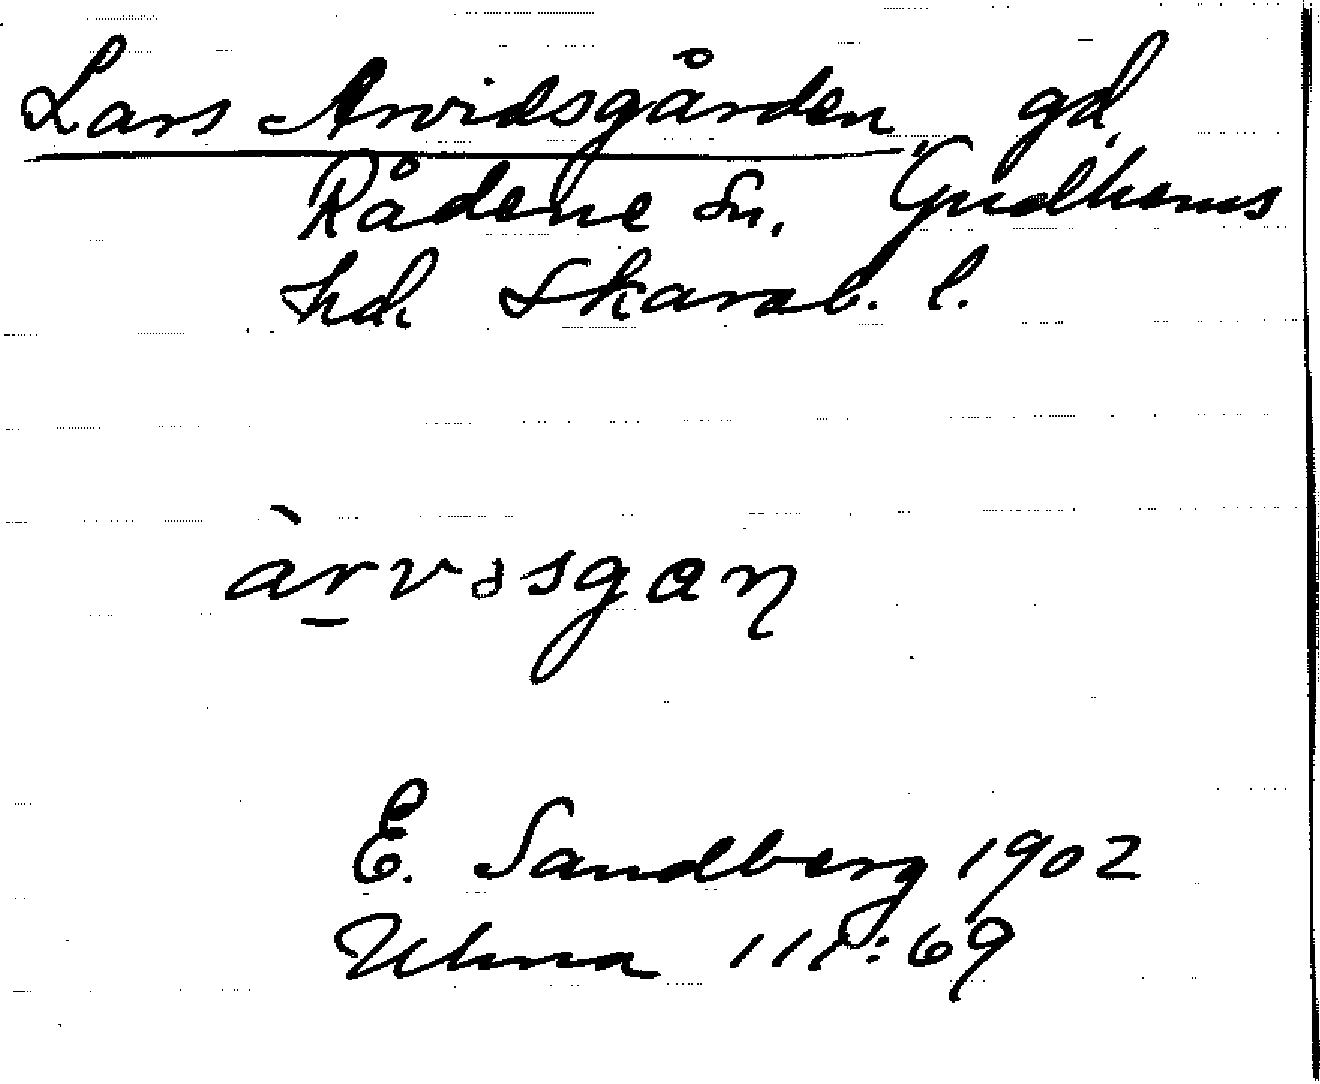 Lars Arvidsgården, gd,
Rådene Sn, Gudhems
hd Skarab. l.
àr̲vəsgaɳ
E. Sandberg 1902
Ulma 111:69